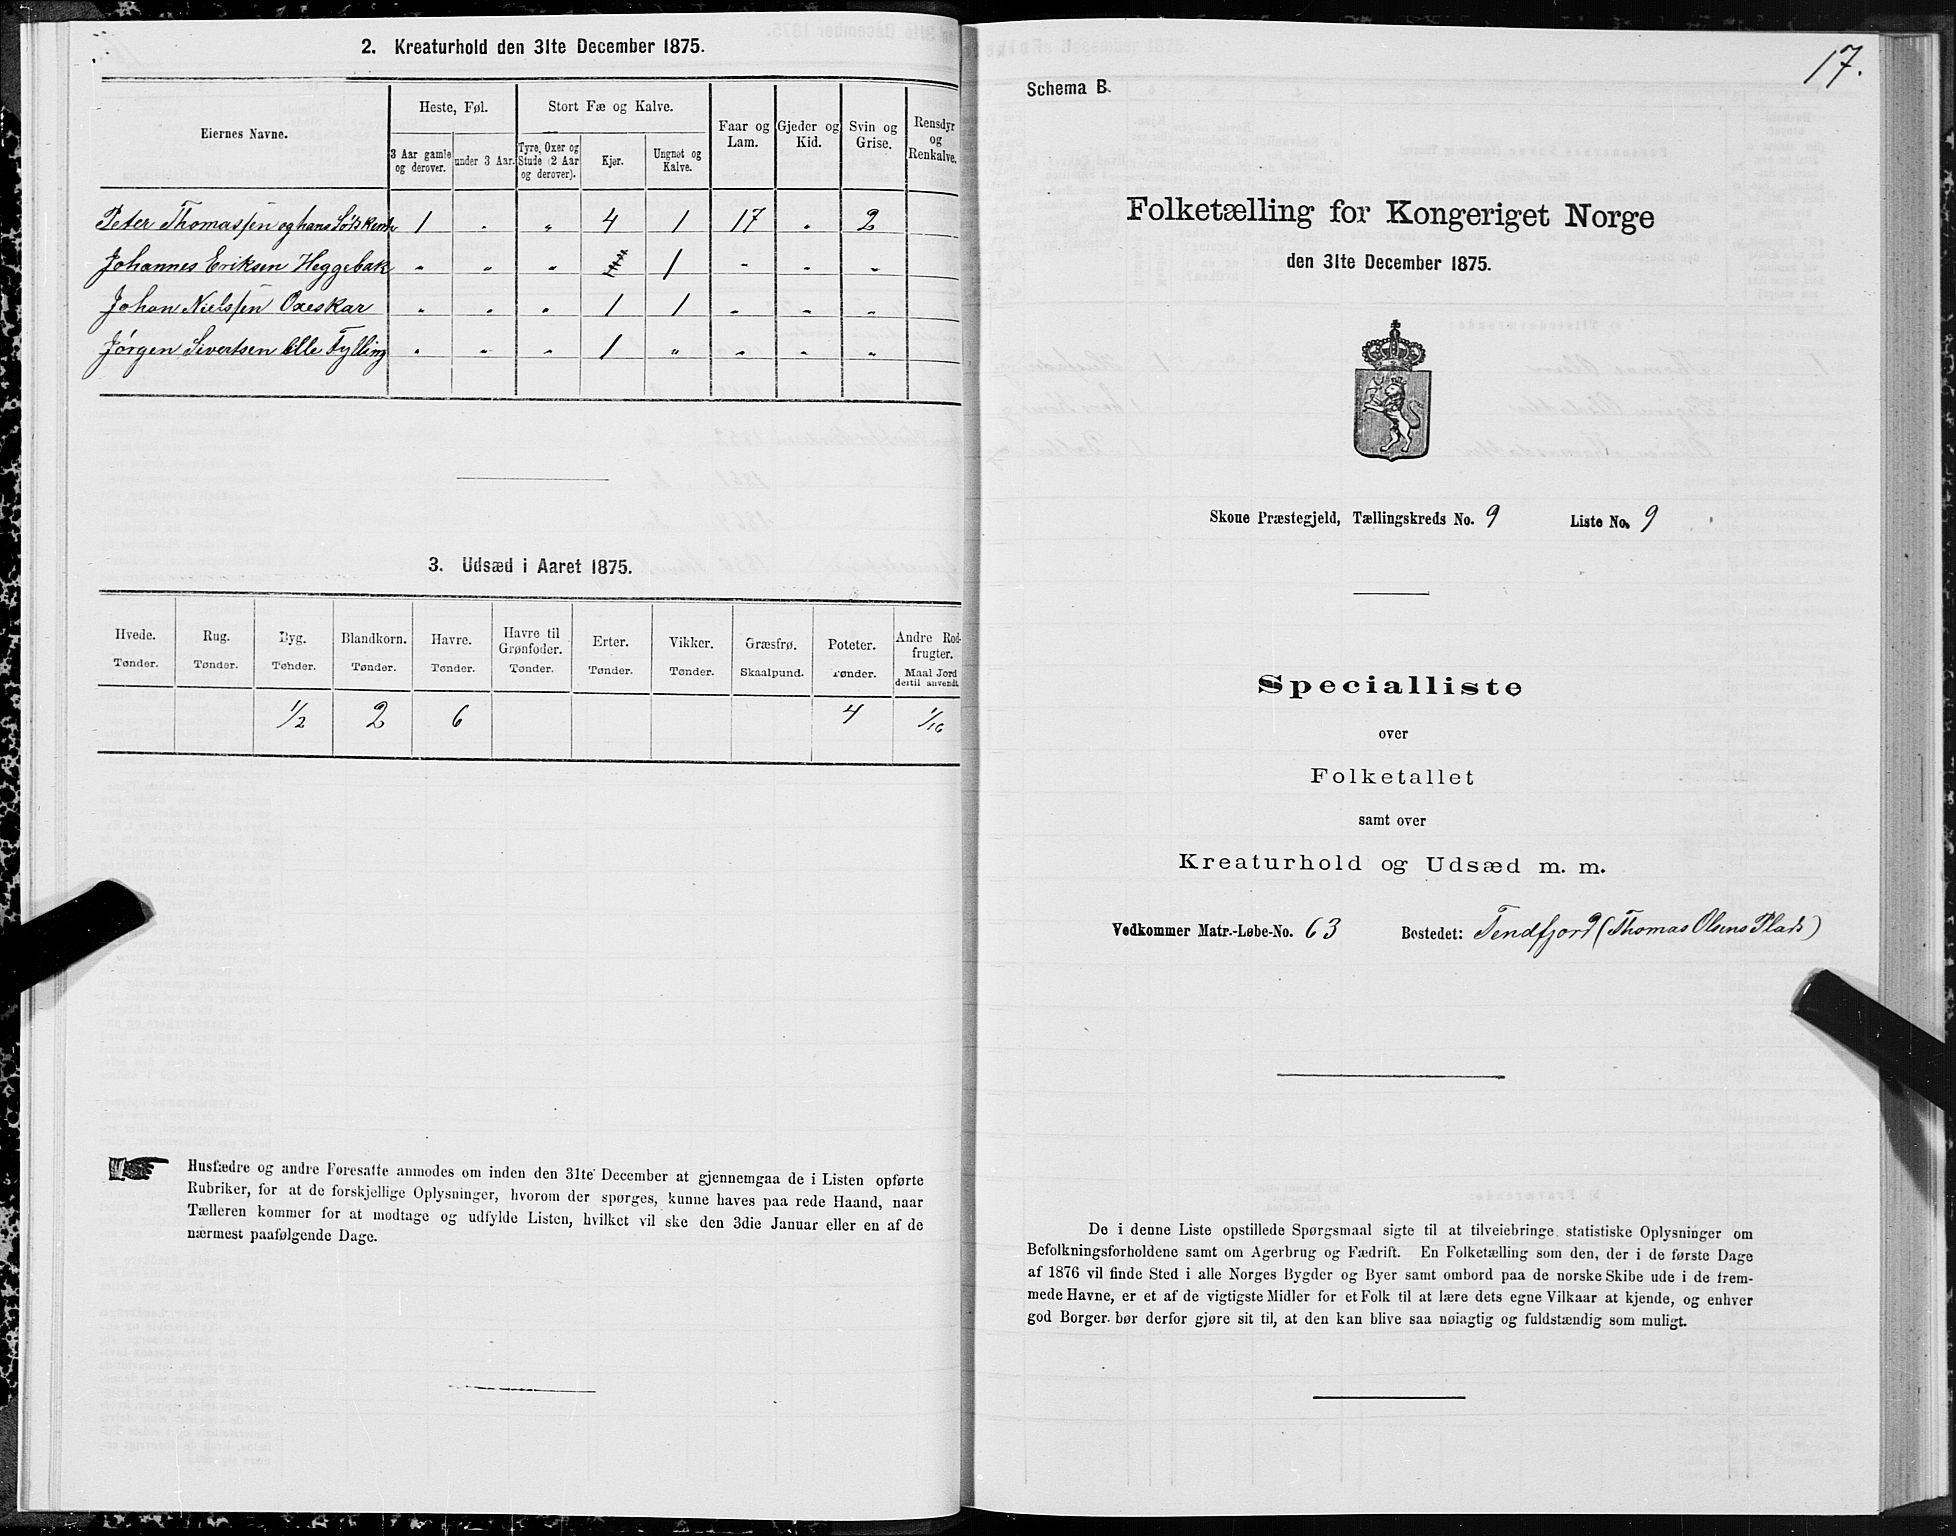 2. Kreaturhold den 31te December 1875.
Eiernes Navne.
Heste, Føl.
Stort Fæ og Kalve.
Faar og Lam.
Gjeder og Kid.
Svin og Grise.
Rensdyr og Renkalve.
3 Aar gamle og derover.
under 3 Aar.
Tyre, Oxer og Stude (2 Aar og derover).
Kjør.
Ungnøt og Kalve.
Peter Thomassen og hans 1 " " 4 1 17 " 2
Johannes Eriksen Heggebak " " " 1 " " "
Johan Nielssen Oxeskar " " " 1 1 " " "
Jørgen Sivertsen Elle Fylling " " " 1 " " " "
3. Udsæd i Aaret 1875.
Hvede. Rug. Byg. Blandkorn. Havre. Havre til Grønfoder. Erter. Vikker. Græsfrø. Poteter. Andre Rodfrugter.
Tønder. Tønder. Tønder. Tønder. Tønder. Tønder. Tønder. Tønder. Skaalpund. Tønder. Maal Jord dertil anvendt
1/2 2 6 4 1/16
Husfædre og andre Foresatte anmodes om inden den 31te December at gjennemgaa de i Listen opførte
Rubriker, for at de forskjellige Oplysninger, hvorom der spørges, kunne haves paa rede Haand, naar
Tælleren kommer for at modtage og udfylde Listen, hvilket vil ske den 3die Januar eller en af de
nærmest paafølgende Dage.
17.
Schema B.
Folketælling for Kongeriget Norge
den 31te December 1875.
Skoue Præstegjeld, Tællingskreds No. 9 Liste No. 9
Specialliste
over
Folketallet
samt over
Kreaturhold og Udsæd m. m.
Vedkommer Matr.-Løbe-No. 63 Bostedet: Tendfjord (Thomas Olsens Plads)
De i denne Liste opstillede Spørgsmaal sigte til at tilveiebringe statistiske Oplysninger om
Befolkningsforholdene samt om Agerbrug og Fædrift. En Folketælling som den, der i de første Dage
af 1876 vil finde Sted i alle Norges Bygder og Byer samt ombord paa de norske Skibe ude i de frem-
mede Havne, er et af de vigtigste Midler for et Folk til at lære dets egne Vilkaar at kjende, og enhver
god Borger bør derfor gjøre sit til, at den kan blive saa nøiagtig og fuldstændig som muligt.